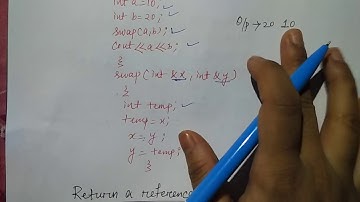 int a=10;
int b=20;
swap(a,b);
cout<<a<<b;
}
swap(int &x, int &y)
{
int temp;
temp=x;
x=y;
y=temp;
}
O/p→20 10
Return a reference